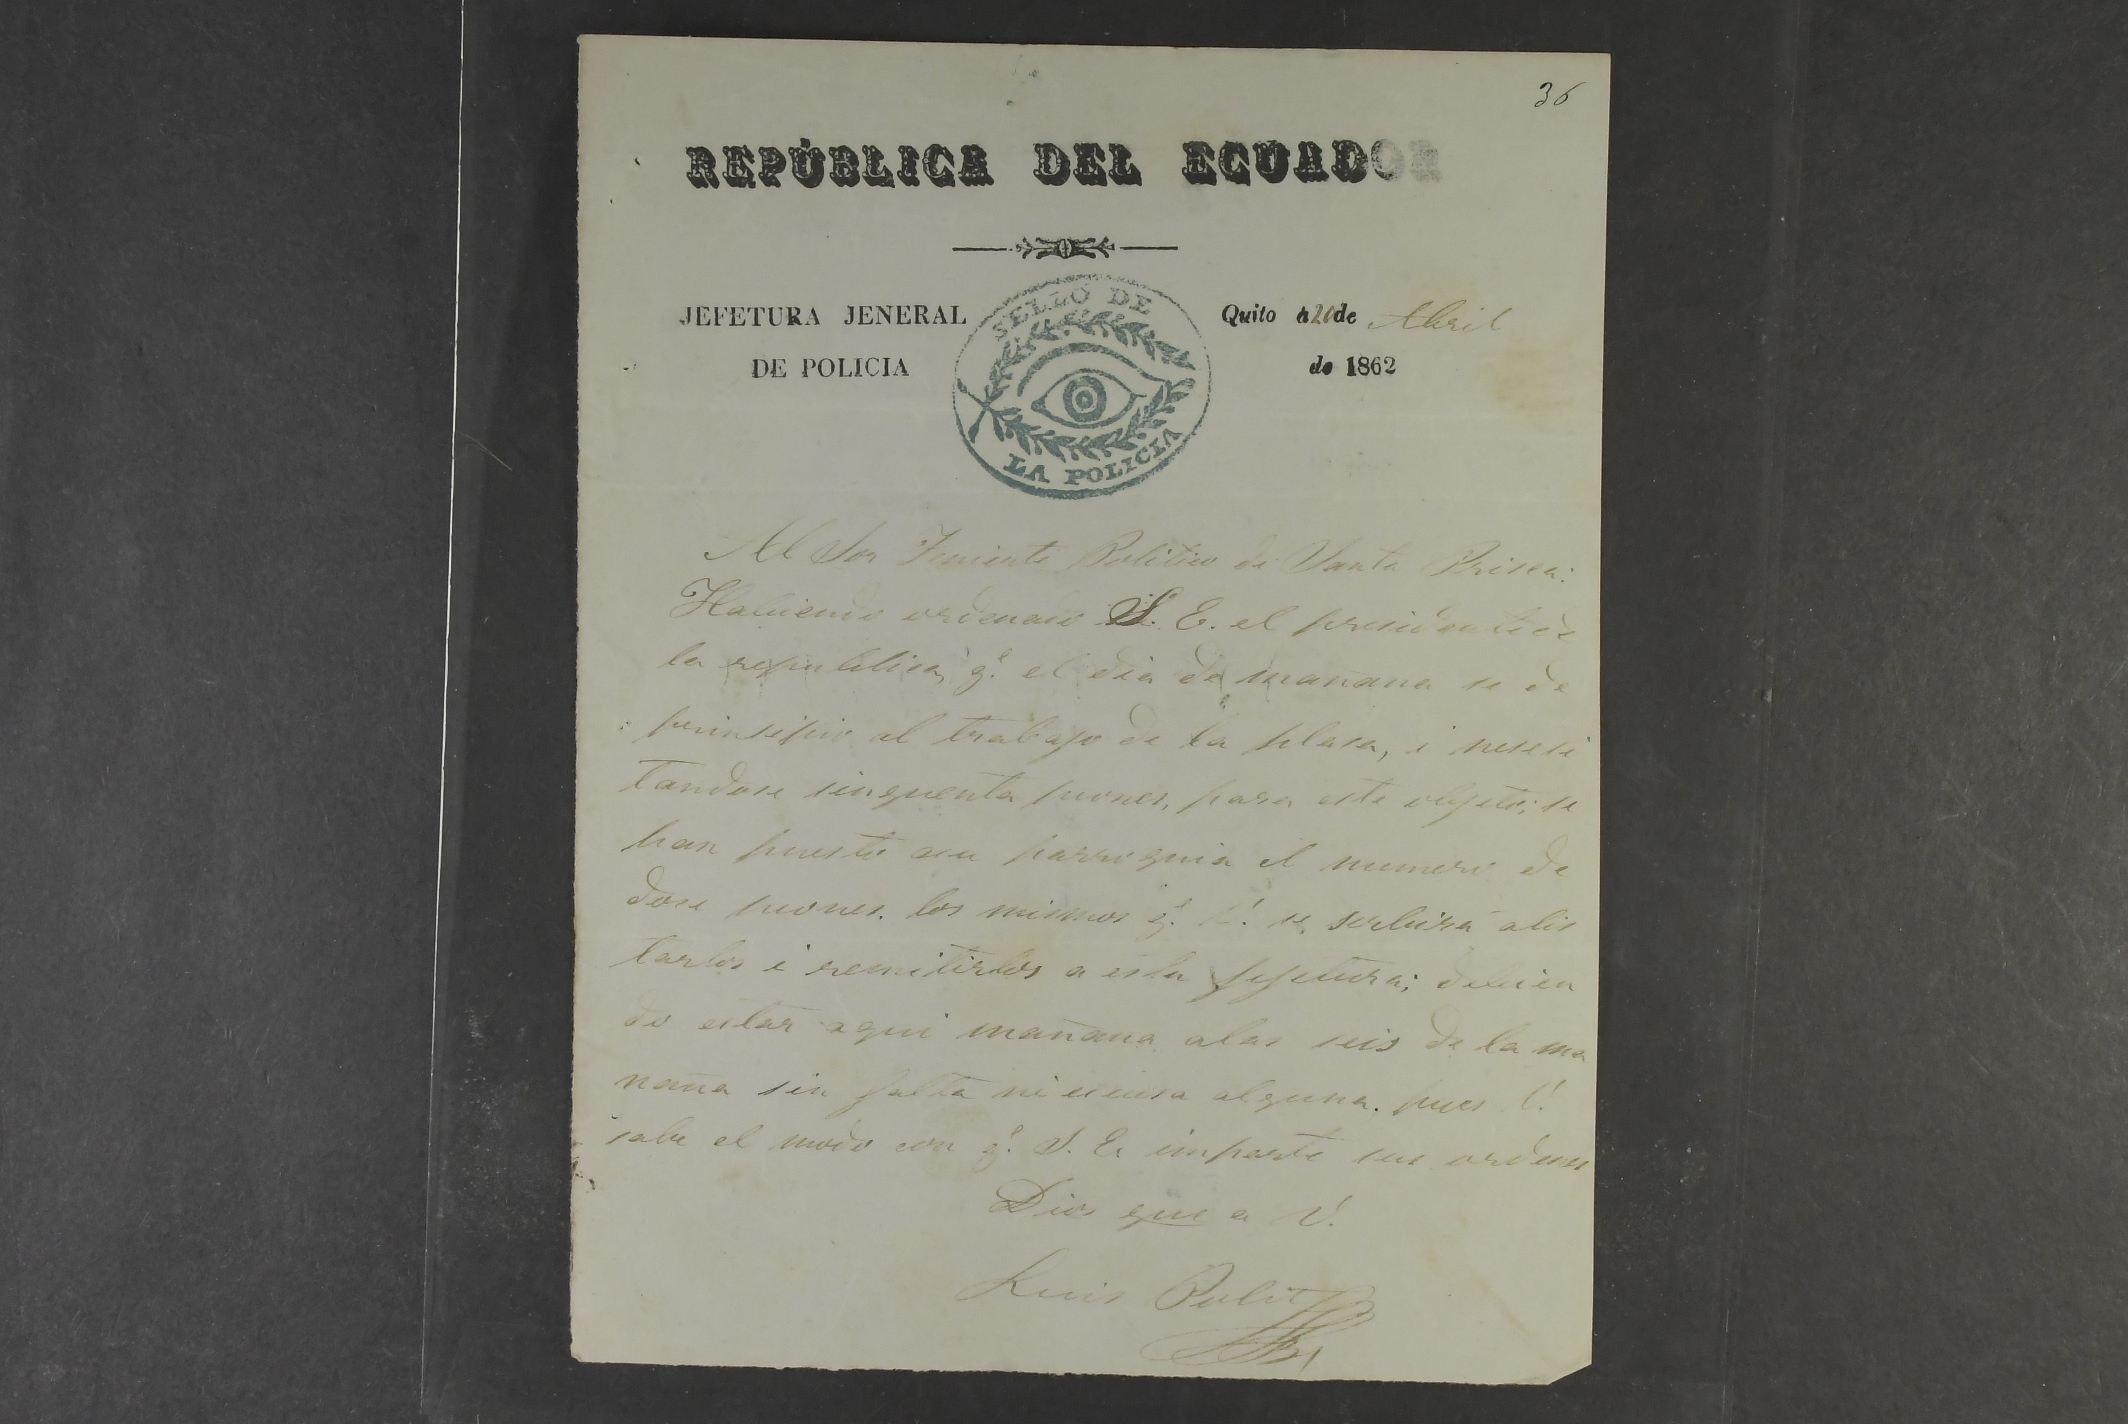 36
REPÚBLICA DEL ECUADOR
JEFETURA JENERAL
DE POLICIA
SELLO DE
LA POLICIA
Quito a 20 de Abril
de 1862
Al Sor Teniente Politico de Santa Prisca:
Habiendo ordenado S. E. el presidente de
la republica, q.e el dia de mañana se de
prinsipio al trabajo de la plasa, i nesesi
tandose sinquenta peones, para este objeto; se
han puesto asu parroquia el numero de
dose peones. los mismos q.e U. se serbirá alis
tarlos i remitirlos a esta jefetura; debien
do estar aqui mañana alas seis de la ma
nana sin falta ni escusa alguna. pues U.
sabe el modo con q.e S. E. imparte sus ordenes
Dios gue a U.
Luis Polit